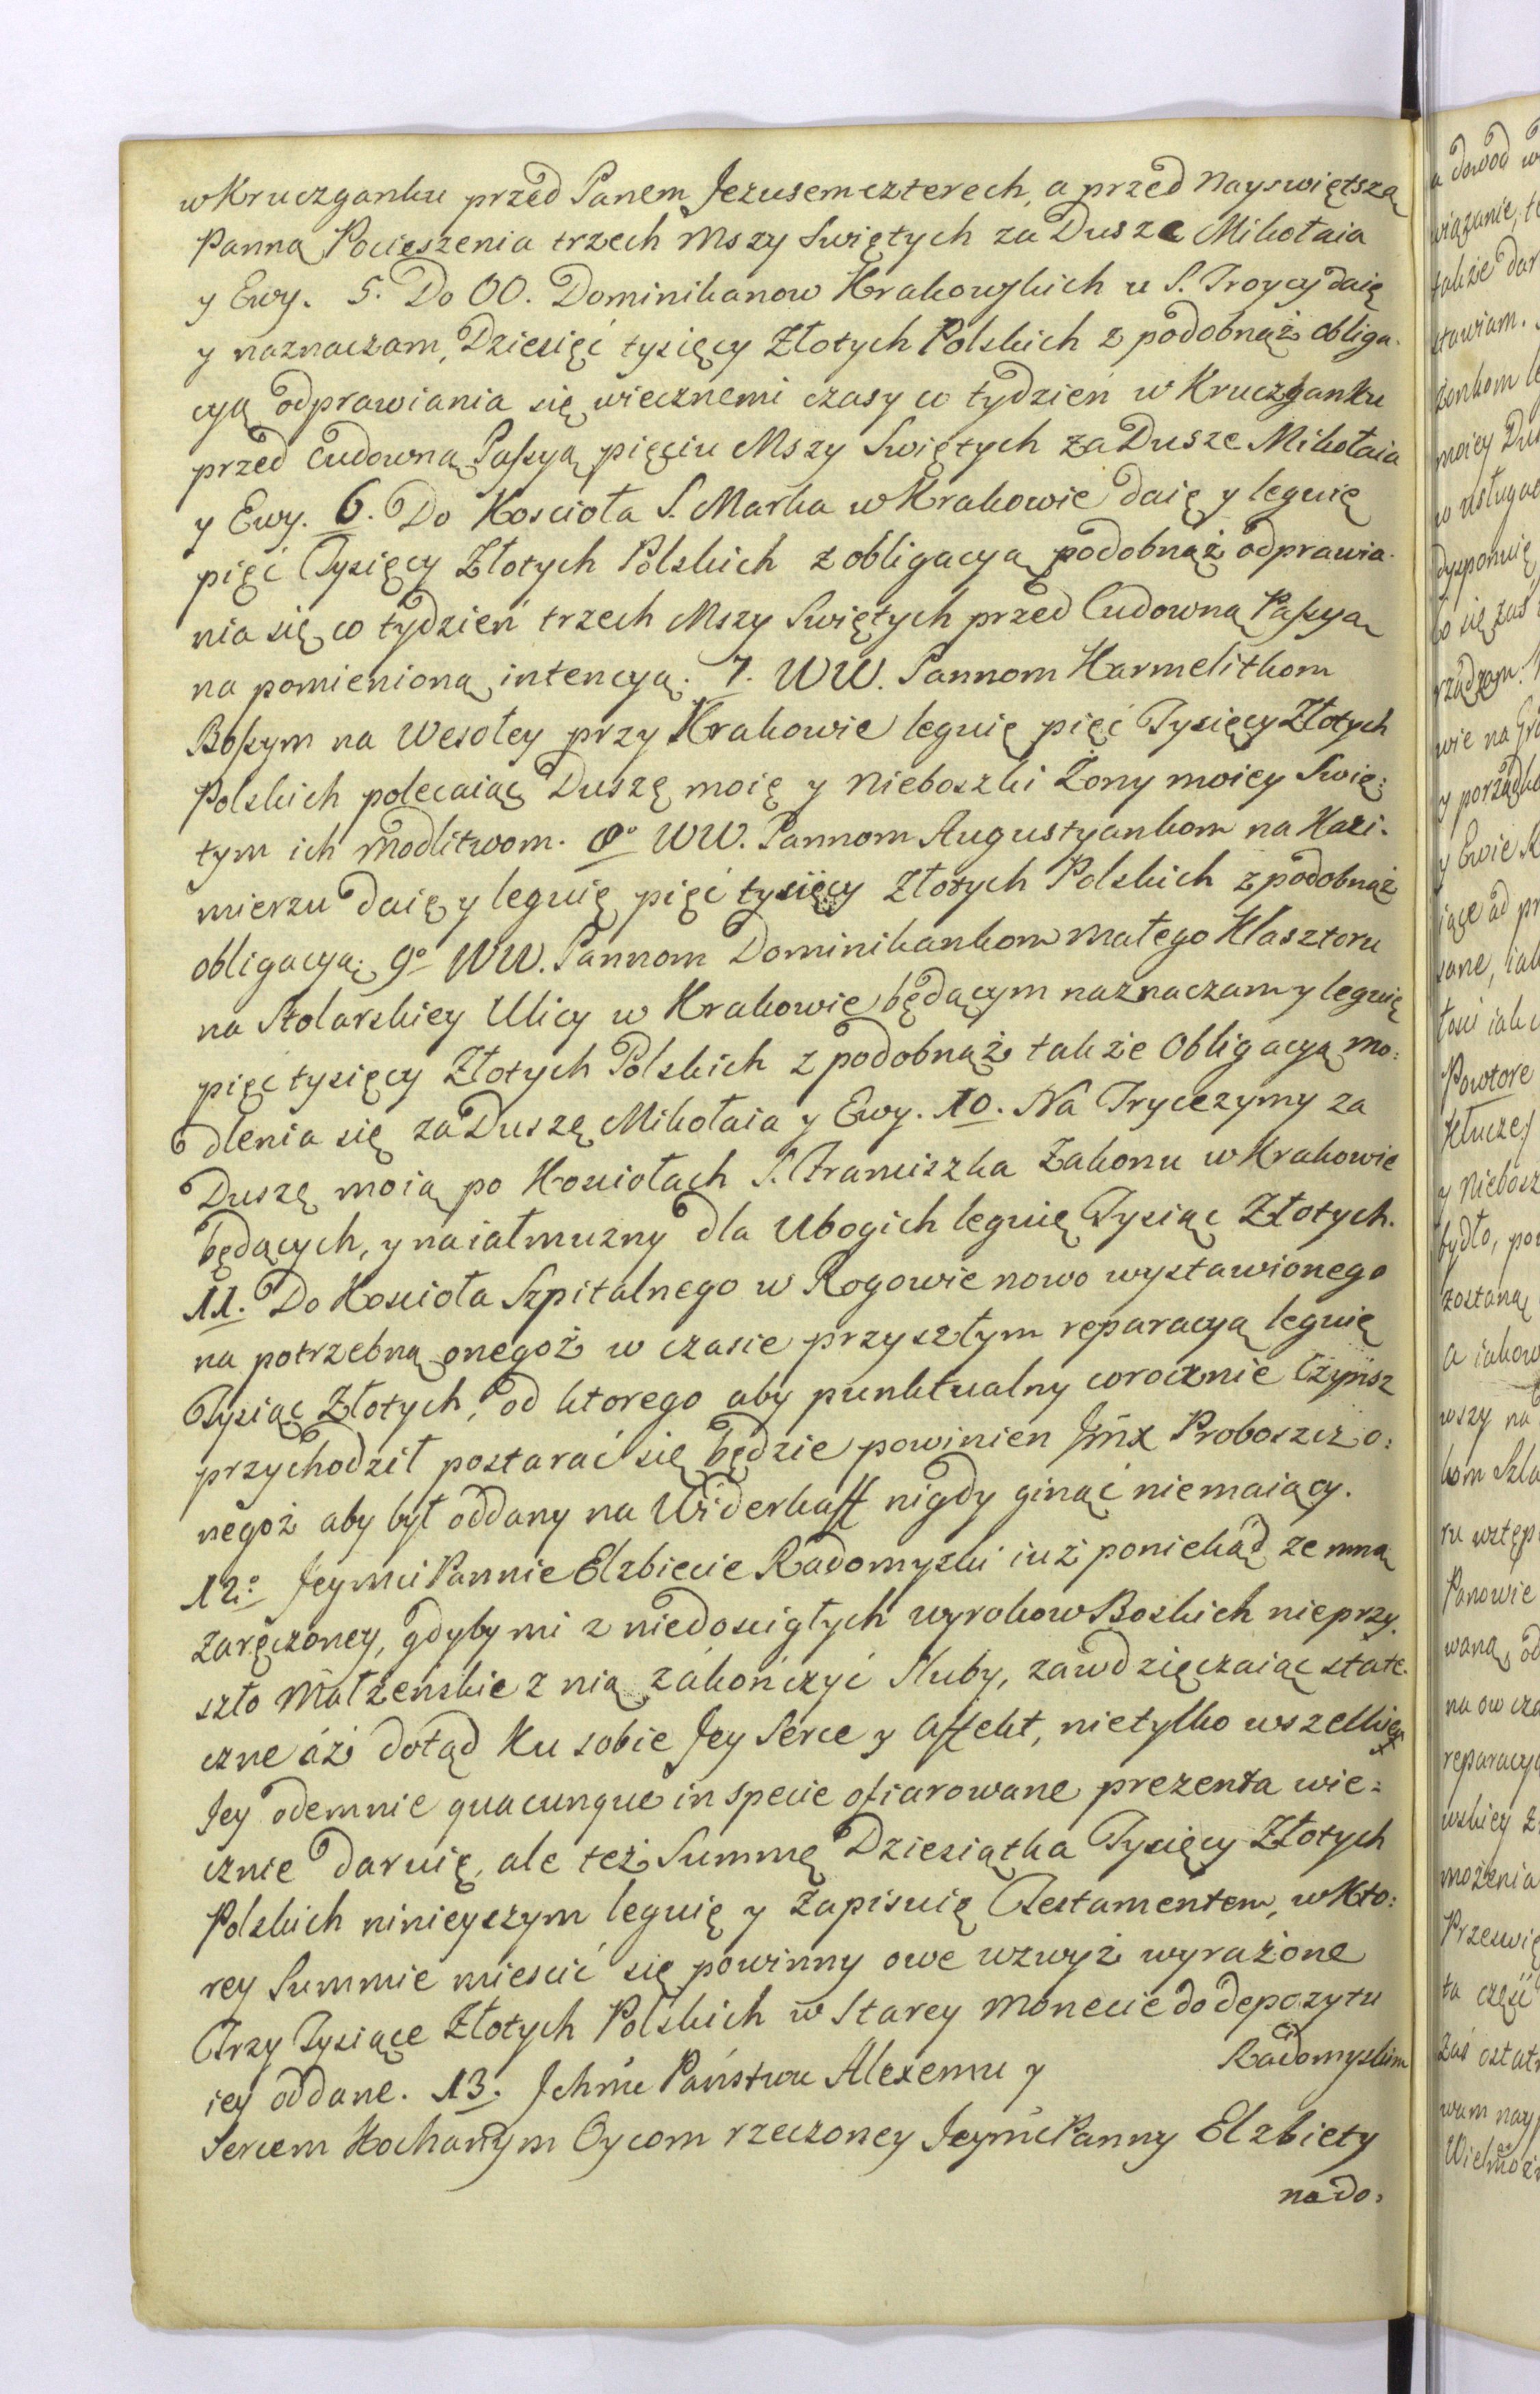 w Kruczganku przed Panem Jezusem czterech, a przed Nayswiętszą
Panną Pocieszenia trzech Mszy Swiętych za Dusze Mikołaia
y Ewy. 5. Do OO. Dominikanow Krakowskich u S. Troycy daię
y naznaczam, Dziesięć tysięcy Złotych Polskich z podobnąż obliga-
cyą odprawiania się wiecznemi czasy co tydzień w Kruczganku
przed Cudowną Passyą pięciu Mszy Swiętych za Dusze Mikołaia
y Ewy. 6. Do Koscioła S. Marka w Krakowie daię y leguię
pięć Tysięcy Złotych Polskich z obligacyą podobnąż odprawia-
nia się co tydzień trzech Mszy Swiętych przed Cudowną Passyą
na pomienioną intencyą. 7. WW. Pannom Karmelitkom
Bossym na Wesołey przy Krakowie leguię pięć Tysięcy Złotych
Polskich polecaiąc Duszę moię y Nieboszki Żony moiey Swię:
tym ich Modlitwom. 8o WW. Pannom Augustyankom na Kazi-
mierzu daię y leguię pięć tysięcy Złotych Polskich z podobnąż
obligacyą. 9o WW. Pannom Dominikankom małego Klasztoru
na Stolarskiey Ulicy w Krakowie będącym naznaczam y leguię
pięć tysięcy Złotych Polskich z podobnąż także Obligacyą mo:
dlenia się za Duszę Mikołaia y Ewy. 10. Na Trycezymy za
Duszę moią po Kosciołach S. Franciszka Zakonu w Krakowie
będących, y na iałmużny dla Ubogich leguię Tysiąc Złotych.
11. Do Koscioła Szpitalnego w Rogowie nowo wystawionego
na potrzebną onegoż w czasie przyszłym reparacyą leguię
Tysiąc Złotych, od ktorego aby punktualny corocznie Czynsz
przychodził postarać się będzie powinien Jmx Proboszcz o:
negoż aby był oddany na Widerkaff nigdy ginąć niemaiący.
12o Jeymci Pannie Elzbiecie Radomyski iuż poniekąd ze mną
zaręczoney, gdyby mi z niedoscigłych wyrokow Boskich nie przy-
szło Małżeńskie z nią zakończyć Sluby, zawdzięczaiąc state-
czne áż dotąd ku sobie Jey Serce y Affekt, nietylko wszelkie
Jey odemnie quacunque in specie ofiarowane prezenta wie=
cznie daruię, ale też Summę Dziesiątka Tysięcy Złotych
Polskich ninieyszym leguię y zapisuię Testamentem, w Kto:
rey Summie miescić się powinny owe wzwyż wyrażone
Trzy Tysiące Złotych Polskich w Starey Monecie do depozytu
iey oddane. 13. Jchmć Państwu Alexemu y Radomyskim
Sercem Kochanym Oycom rzeczoney Jeymć Panny Elzbiety
na do: